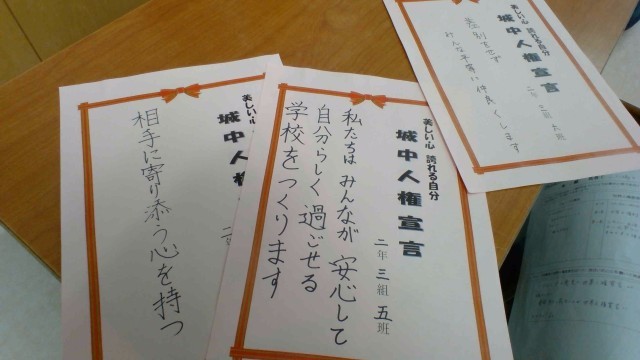 美しい心 誇れる自分
城中人権宣言
相手に寄り添う心を持つ
美しい心 誇れる自分
城中人権宣言
二年三組五班
私たちはみんなが安心して
自分らしく過ごせる
学校をつくります
美しい心 誇れる自分
城中人権宣言
差別をせず
みんな平等に仲良くします